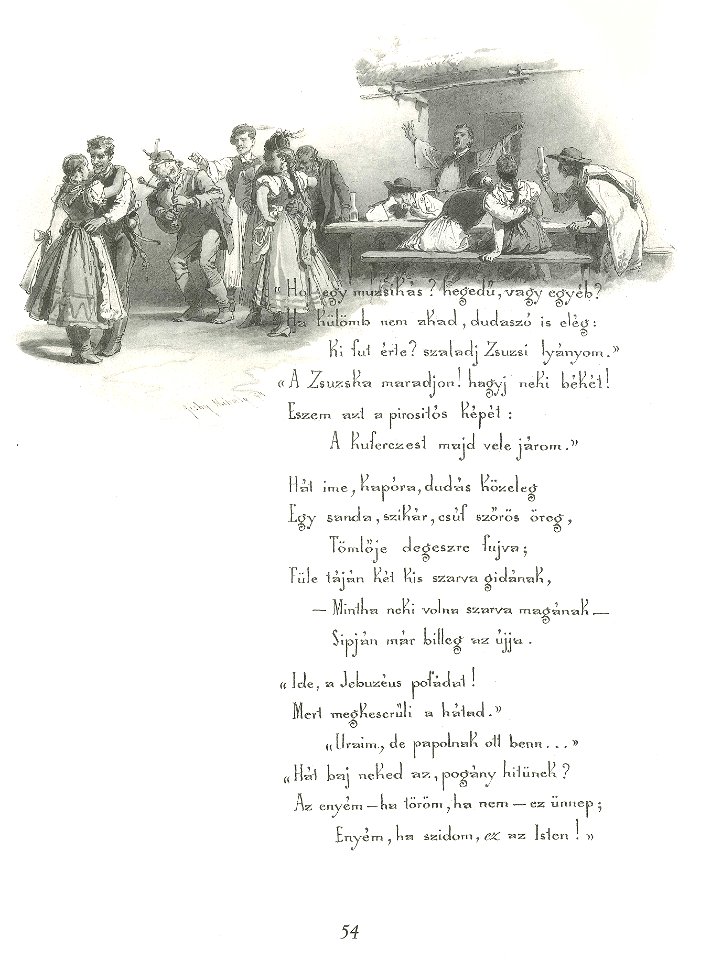 «Hol egy muzsikás? hegedű, vagy egyéb?
Ha külömb nem akad, dudaszó is elég:
Ki fut érte? szaladj Zsuzsi lyányom.”
«A Zsuzska maradjon! hagyj neki békét!
Eszem azt a pirosítós képét:
A kuferczest majd vele járom.”
Hát ime, kapóra, dudás közeleg
Egy sanda, szikár, csúf szőrös öreg,
Tömlője degeszre fujva;
Füle táján két kis szarva gidának,
— Mintha neki volna szarva magának —
Sipján már billeg az újja.
«Ide, a Jebuzéus pofádat!
Mert megkeserűli a hátad.”
«Uraim, de papolnak ott benn...”
«Hát baj neked az, pogány hitünek?
Az enyém — ha töröm, ha nem — ez ünnep;
Enyém, ha szidom, ez az Isten!»
54